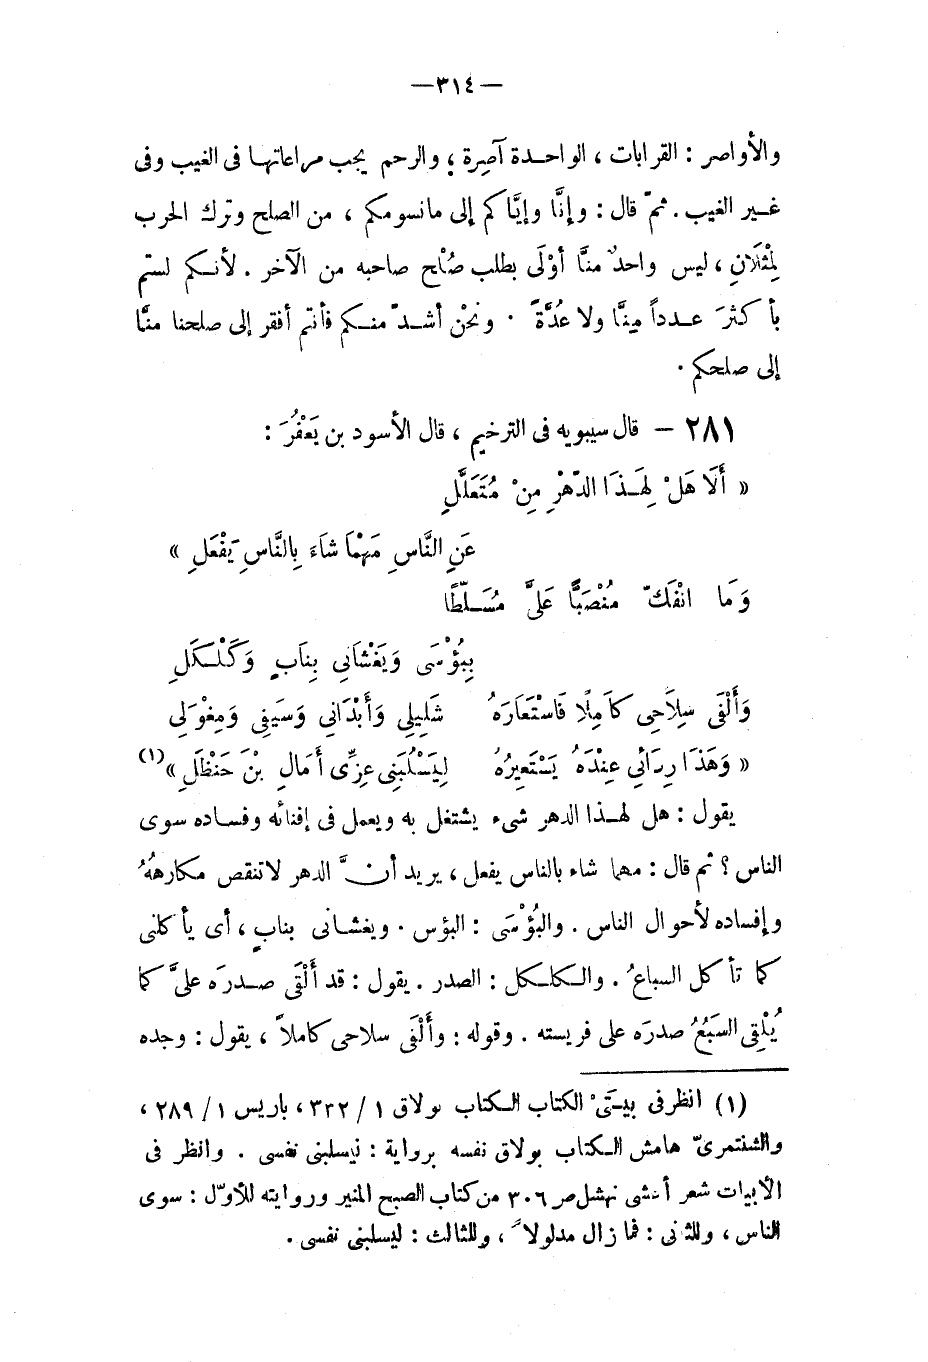 —٣١٤—
والأواصر : القرابات ، الواحدة آصِرة ؛ والرحم يجب مراعاتها فى الغيب وفى
غير الغيب . ثمّ قال : وإنَّا وإيَّاكم إلى مانسومكم ، من الصلح وترك الحرب
لمِثْلَانِ ، ليس واحدٌ منَّا أوْلَى بطلب صُلْح صاحبه من الآخر . لأنكم لستم
بأكثرَ عدداً مِنَّا ولا عُدَّةً . ونحْن أشدّ منكم فأنتم أفقر إلى صلحنا منَّا
إلى صلحكم .
٢٨١ – قال سيبويه فى الترخيم ، قال الأسود بن يَعْفُرَ :
« أَلَا هَلْ لِهَذَا الدّهْرِ مِنْ مُتَعَلَّلِ
عَنِ النَّاسِ مَهْمَا شَاءَ بِالنَّاسِ يَفْعَلِ »
وَمَا انْفَكّ مُنْصَبًّا عَلَىَّ مُسَلّطًا
بِبُؤْسَى وَيَغْشَانِى بِنَابٍ وَكَلْكَلِ
وَأَلْفَى سِلَاحِى كَامِلًا فَاسْتَعَارَهُ شَلِيلِى وَأَبْدَانِى وَسَيفِى وَمِغْوَلِى
« وَهَذَا رِدَائِى عِنْدَهُ يَسْتَعِيرُهُ لِيَسْلُبَنِى عِزِّى أَمَالِ بْنَ حَنْظَلِ »(١)
يقول : هل لهذا الدهر شىء يشتغل به ويعمل فى إفنائه وفساده سوى
الناس ؟ ثم قال : مهما شاء بالناس يفعل ، يريد أنَّ الدهر لاتنقص مكارهُهُ
وإفساده لأحوال الناس . والبُؤْسَى : البؤس . ويغشانى بنابٍ ، أى يأكلنى
كما تأكل السباعُ . والكلكل : الصدر . يقول : قد أَلْقَى صدرَه علىَّ كما
يُلْقِى السَبُعُ صدرَه على فريسته . وقوله : وأَلْفَى سلاحى كاملاً ، يقول : وجده
(١) انظر فى بيتَىْ الكتاب الكتاب بولاق ١ / ٣٣٢ ، باريس ١ / ٢٨٩ ،
والشنتمرىّ هامش الكتاب بولاق نفسه برواية : ليسلبنى نفسى . وانظر فى
الأبيات شعر أعشى نهشل ص ٣٠٦ من كتاب الصبح المنير وروايته للأوّل : سوى
الناس ، وللثانى : فما زال مدلولاً ، وللثالث : ليسلبنى نفسى .